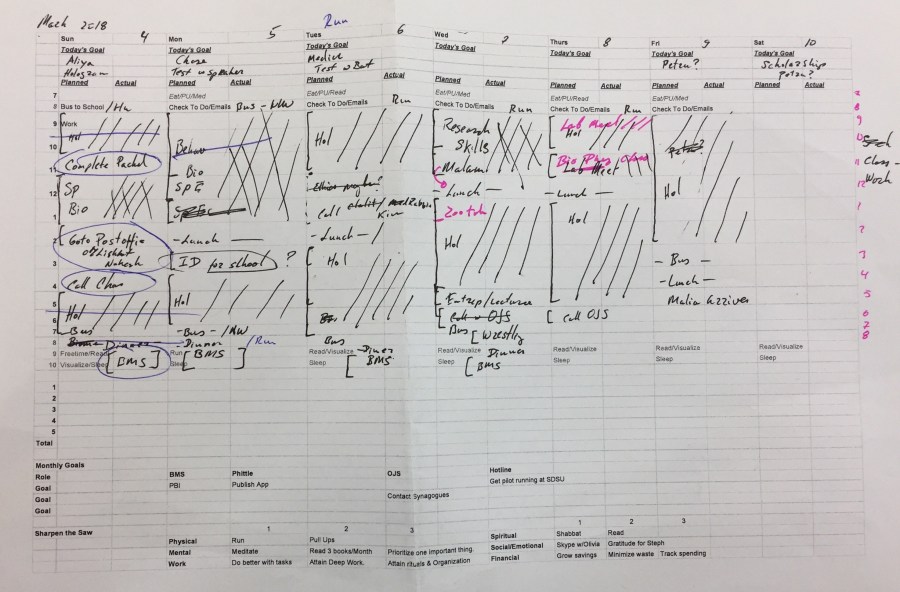 2018
Run
Sun 4 Mon 5 Tues 6 Wed 7 Thurs 8 Fri 9 Sat 10
Today's Goal Today's Goal Today's Goal Today's Goal Today's Goal Today's Goal Today's Goal
Aliya Chase Petzu? Scholarship
Hologram Test w speaker Test w Bat Petzu?
Planned Actual Planned Actual Planned Actual Planned Actual Planned Actual Planned Actual Planned Actual
7 Eat/PU/Med Eat/PU/Read Eat/PU/Med Eat/PU/Read Eat/PU/Med
8 Bus to School /HW Check To Do/Emails Bus - HW Check To Do/Emails Run Check To Do/Emails Run Check To Do/Emails Run Check To Do/Emails 8
9 Work Hol Research Lab Meet 9
Hol Behav Skills Hol
10 Petzu?
Complete Packet Bio Malami Bio Phys Class Class -
11 Lab Meet Work
12 Sp Sp E - Lunch - - Lunch - Hol
Bio Call Kim Zootah Hol
1
2 Goto Post office - Lunch - - Lunch - Hol 2
3 ID for school ? Hol - Bus - 3
4 Call Chas - Lunch - 4
5 Hol Hol Malia 5
6 Call OJS Call OJS 6
7 Bus - Bus - /HW Bus Bus Wrestling 7
8 Dinner - Dinner / Run Dinner 8
9 Freetime/Read BMS Run BMS Read/Visualize - Diner Read/Visualize Read/Visualize Read/Visualize Read/Visualize
10 Visualize/Sleep Sleep Sleep BMS Sleep BMS Sleep Sleep Sleep
1
2
3
4
5
Total
Monthly Goals
Role BMS Phittle OJS Hotline
Goal PBI Publish App Get pilot running at SDSU
Goal Contact Synagogues
Goal
Sharpen the Saw 1 2 3 1 2 3
Physical Run Pull Ups Spiritual Shabbat Read
Mental Meditate Read 3 books/Month Prioritize one important thing Social/Emotional Skype w/Olivia Gratitude for Steph
Work Do better with tasks Attain Deep Work. Attain rituals & Organization Financial Grow savings Minimize waste Track spending